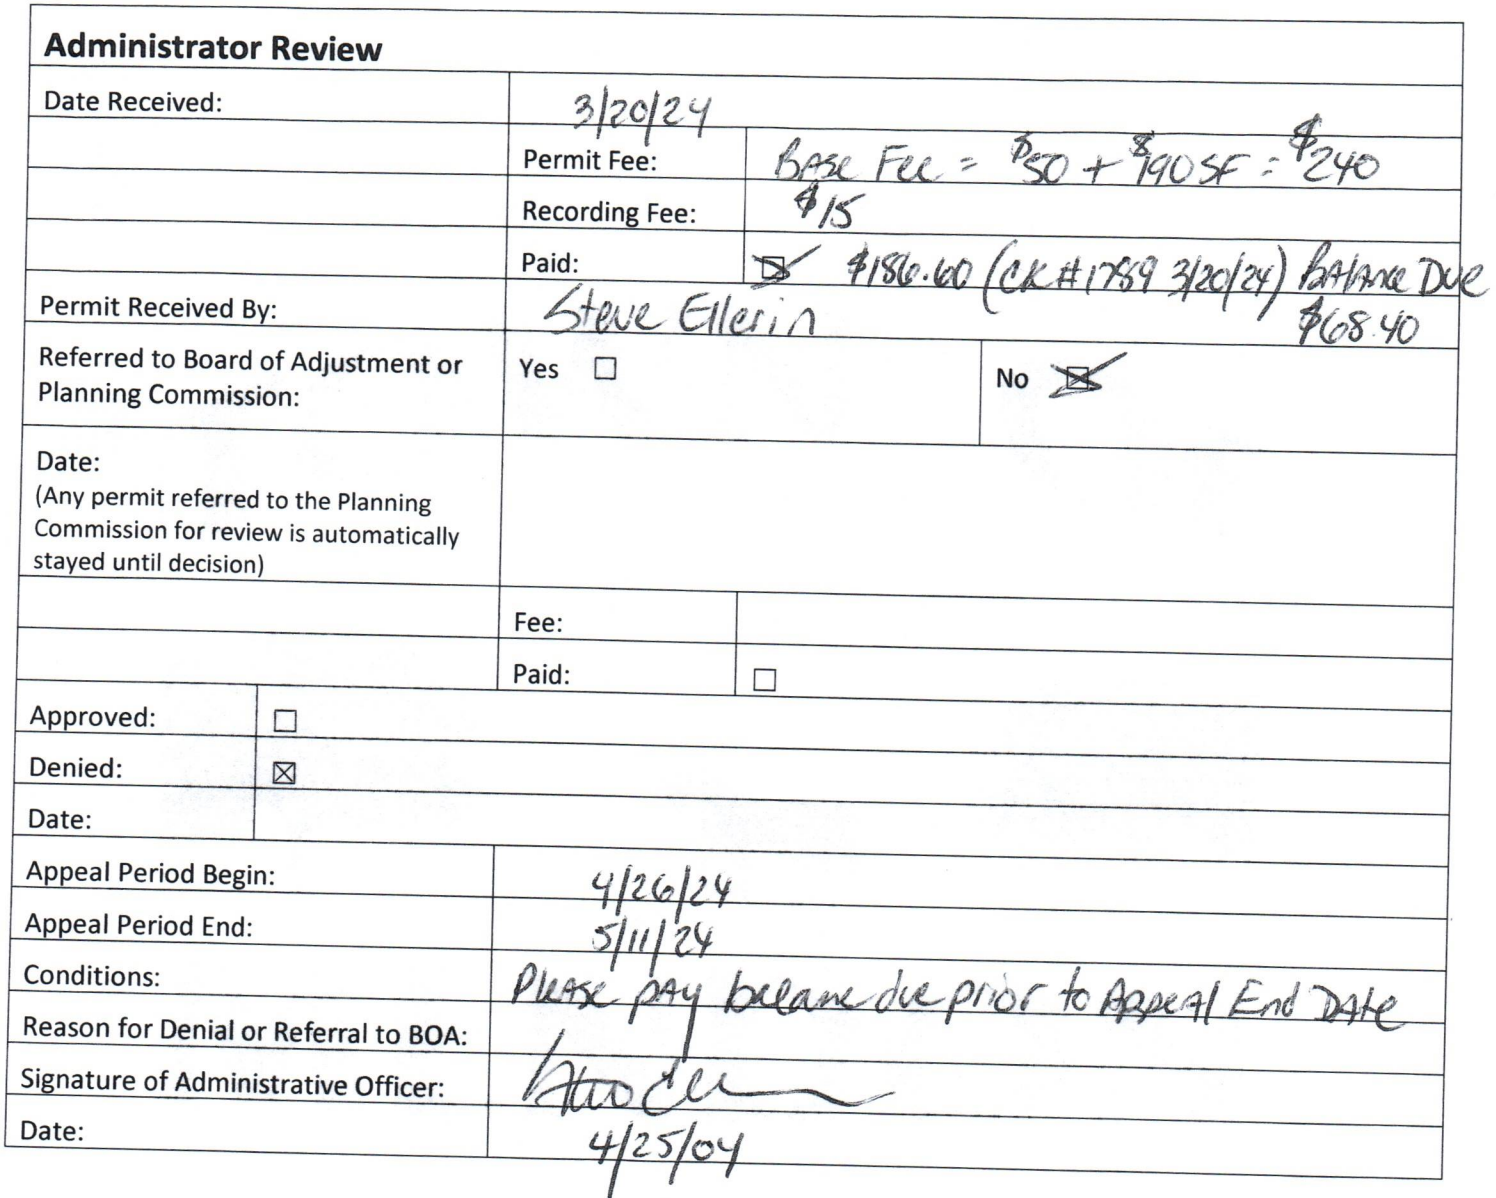 Administrator Review
Date Received: 3/20/24
Permit Fee: Base Fee = $50 + $190 SF = $240
Recording Fee: $15
Paid: ☒ $186.60 (CK #1789 3/20/24) Balance Due
$68.40
Permit Received By: Steve Ellerin
Referred to Board of Adjustment or
Planning Commission:
Yes ☐ No ☒
Date:
(Any permit referred to the Planning
Commission for review is automatically
stayed until decision)
Fee:
Paid: ☐
Approved: ☐
Denied: ☒
Date:
Appeal Period Begin: 4/26/24
Appeal Period End: 5/11/24
Conditions: Please pay balance due prior to Appeal End Date
Reason for Denial or Referral to BOA:
Signature of Administrative Officer:
Date: 4/25/04